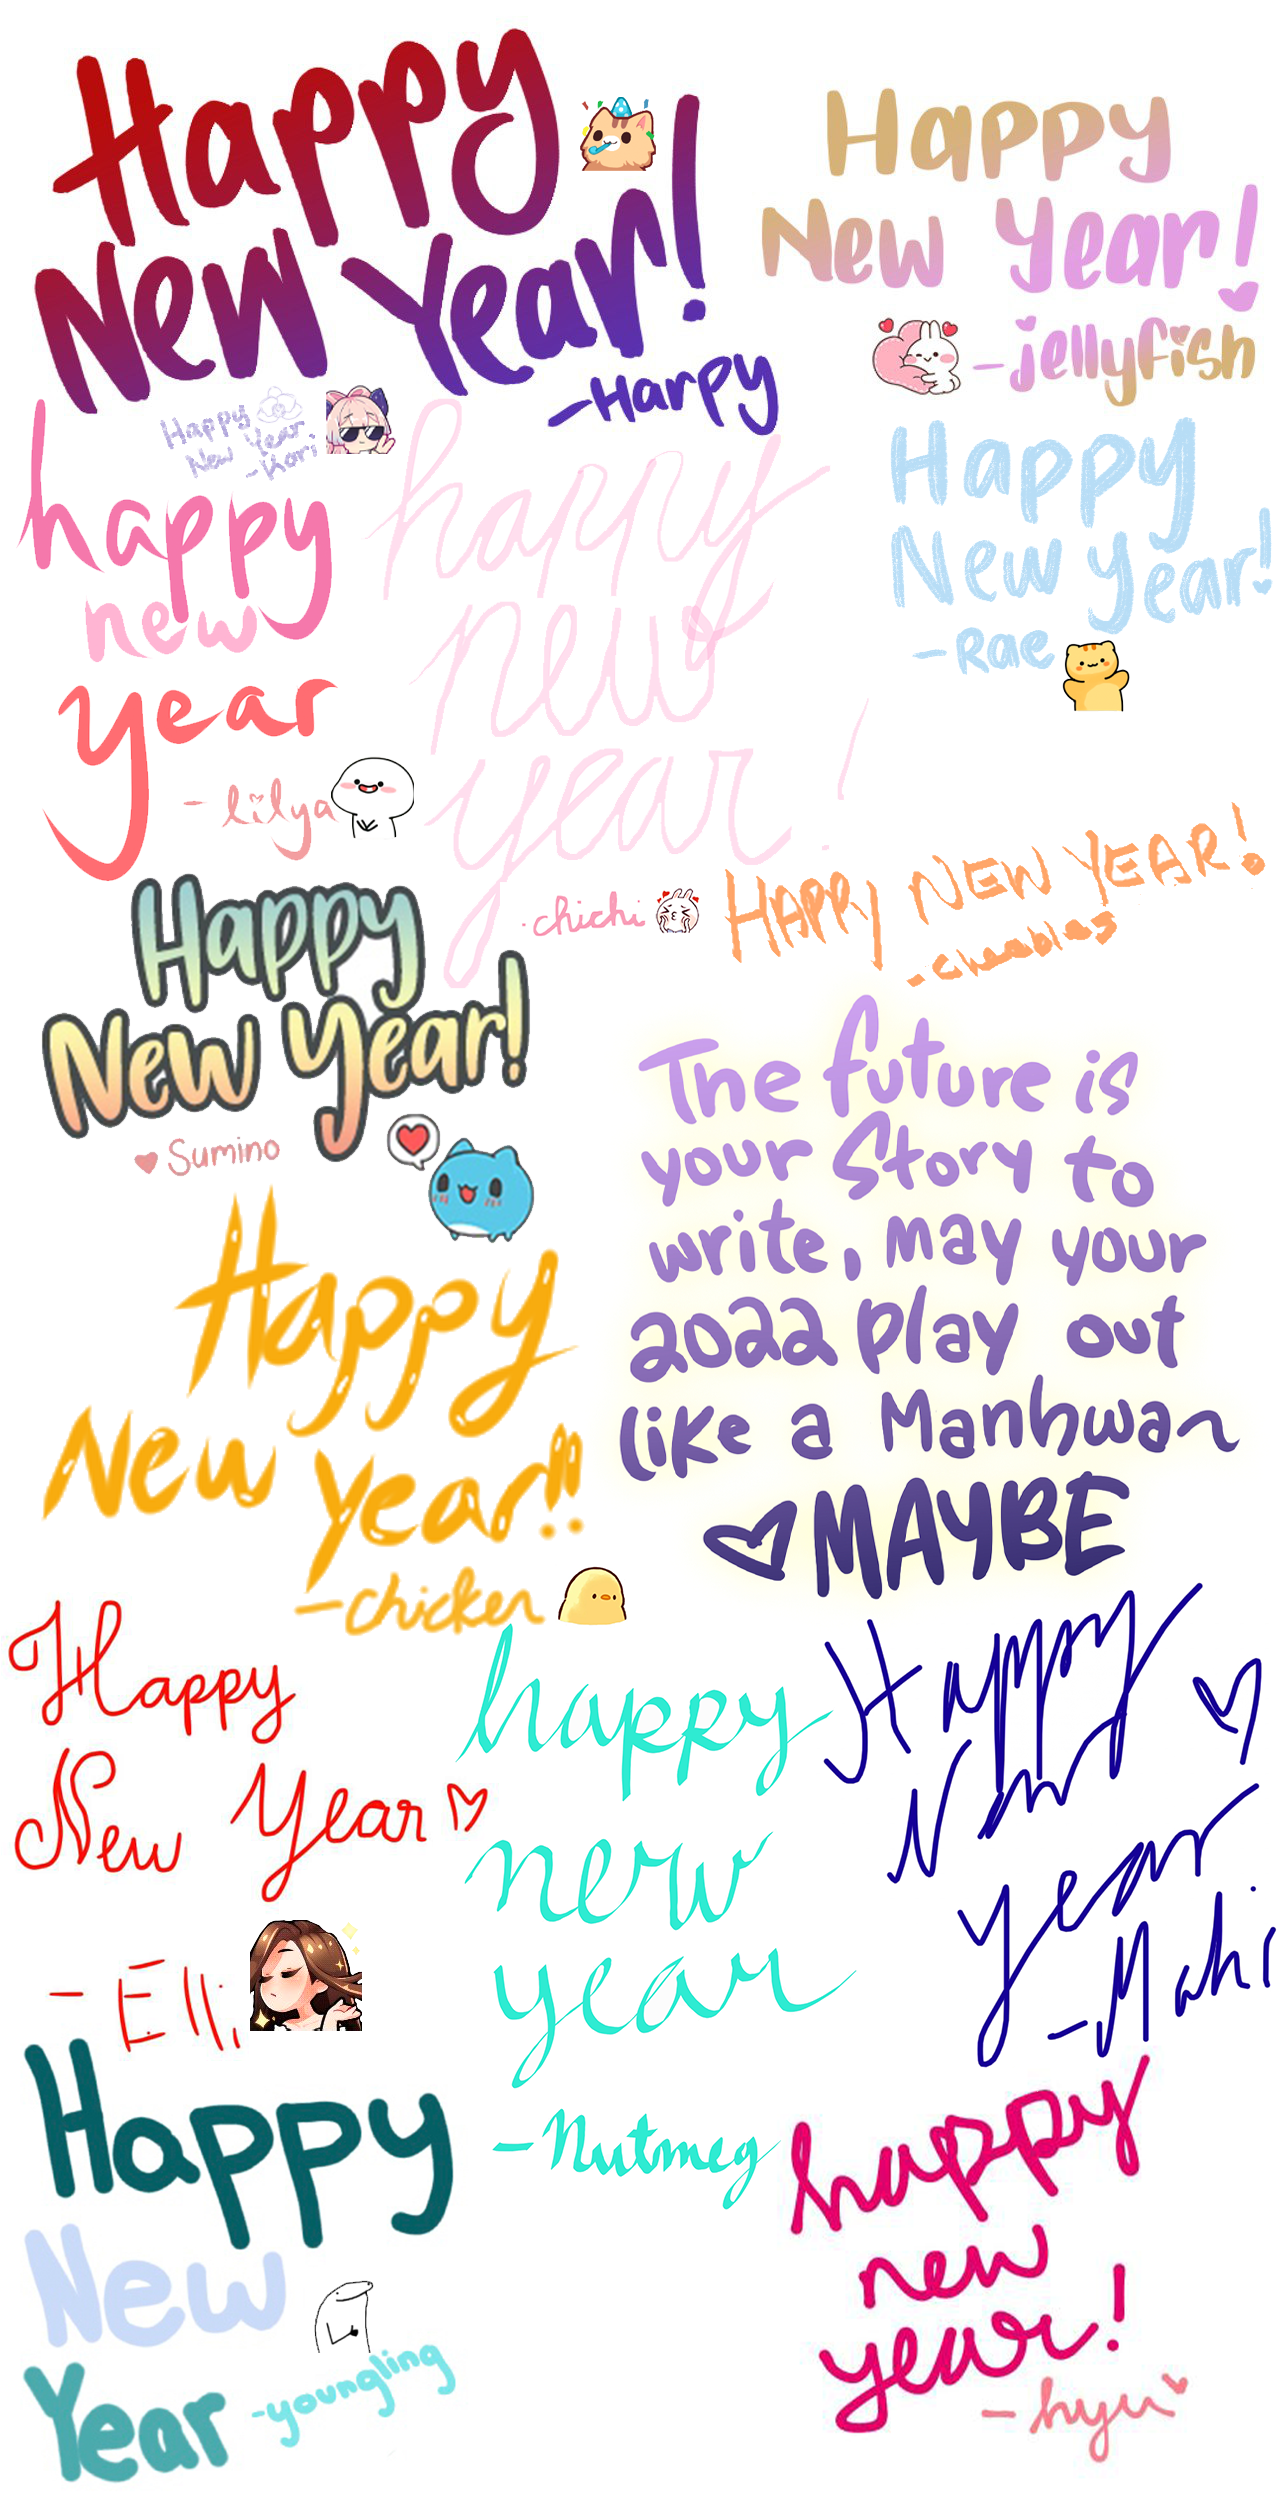 Happy
New Year!
-Harpy
Happy
New Year!
-jellyfish
Happy
New Year
-Kori
happy
new
year
-lilya
happy
new
year!
-chichi
Happy
New Year!
-Rae
HAPPY NEW YEAR!
Happy
New Year!
Sumino
The future is
your Story to
write, may your
2022 play out
like a Manhwa~
MAYBE
Happy
New Year!!
-chicken
Happy
New Year
-Elli
happy
new
year
-Nutmeg
Happy
New
Year
Happy
New
Year
-youngling
happy
new
year!
-hyu